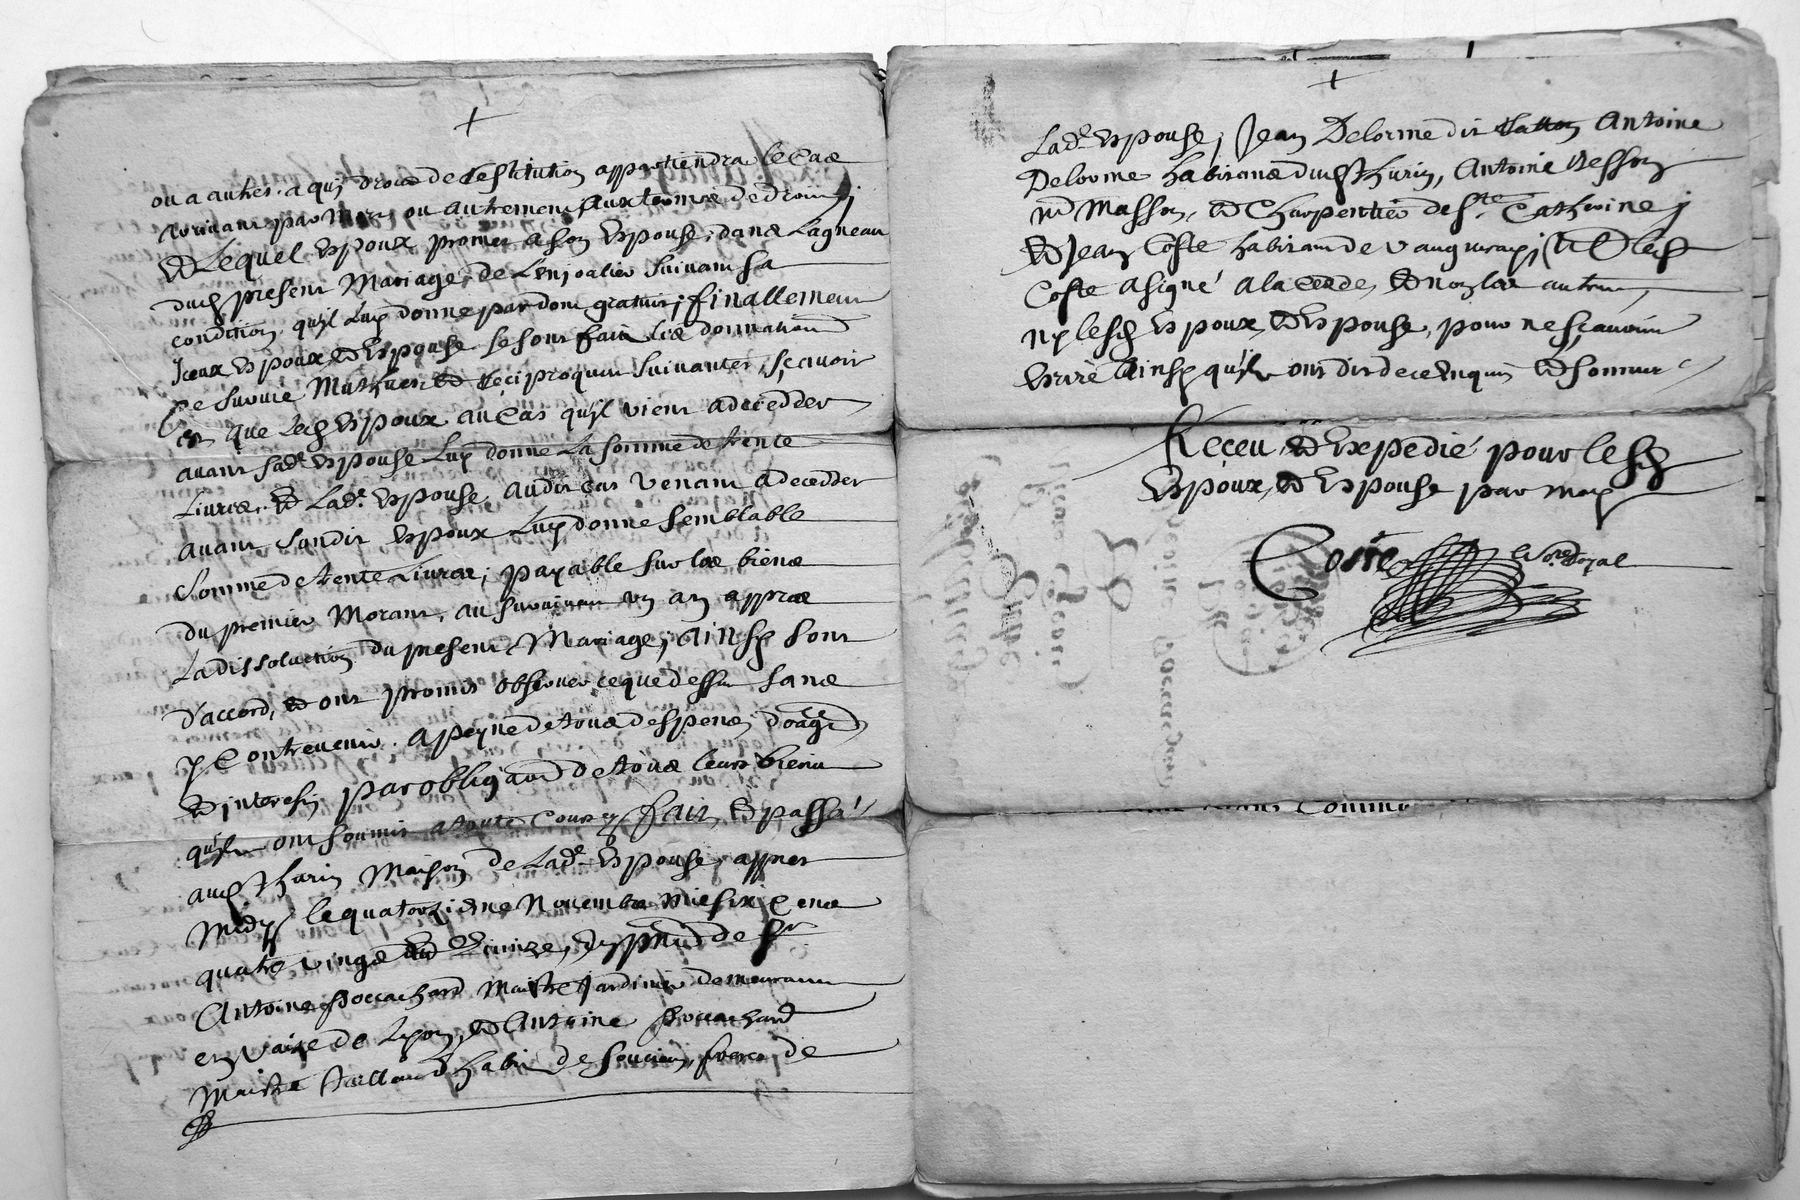 ou a autres a quy droict de restitution appartiendra le cas
arrivant par mort ou autrement aux termes de droict
et Lequel Espoux promet a son Espouse, dans Lagneau
dud present Mariage, de Lenjoalier suivant sa
condition, qu'jl Luy donne par don gratuit, finallement
Jceux Espoux et Espouse se sont faict les donnations
de survie Mutuelles et reciproques suivantes, sçavoir
est que Led Espoux au Cas qu'jl vient a decedder
avant sad.e Espouse Luy donne La somme de trente
Livres, et Lad.e Espouse audit cas venant a decedder
avant sondit Espoux Luy donne semblable
somme de trente Livres, payable sur les biens
du premier Morant, au survivant un an appres
La dissoluction du present Mariage, Ainsy sont
d'accord, et ont promis observer ce que dessus sans
y Contrevenir, a peyne de tous despens, domages
et jnterestz par obligaōn de tous leurs biens
qu'jlz ont soumis a toutes Cours, fait et passé
aud thurin Maison de Lad.e Espouse, appres
Midy le quatorzieme Novembre Mil six Cens
quatre vingts et Quinze, en pnce de Sr
Antoine Maitre Jardinier demeurant
en Vaize de Lyon, et Antoine
Maitre tailleur habit de Soucieu, frere de
Lad.e Espouse, Jean Delorme dit Antoine
Delorme habitans dud thurin, Antoine Besson
Md Masson, et Charpentier de Ste Catherine,
et Jean Coste habitant de
Coste a signé a la cede, et non les autres,
ny lesd Espoux et Espouse, pour ne sçavoir
Escrire Ainsy qu'jlz ont dit de ce Enquis et sommes
Receu et Expedié pour lesd
Espoux, et Espouse par moy
Coste Nore Royal